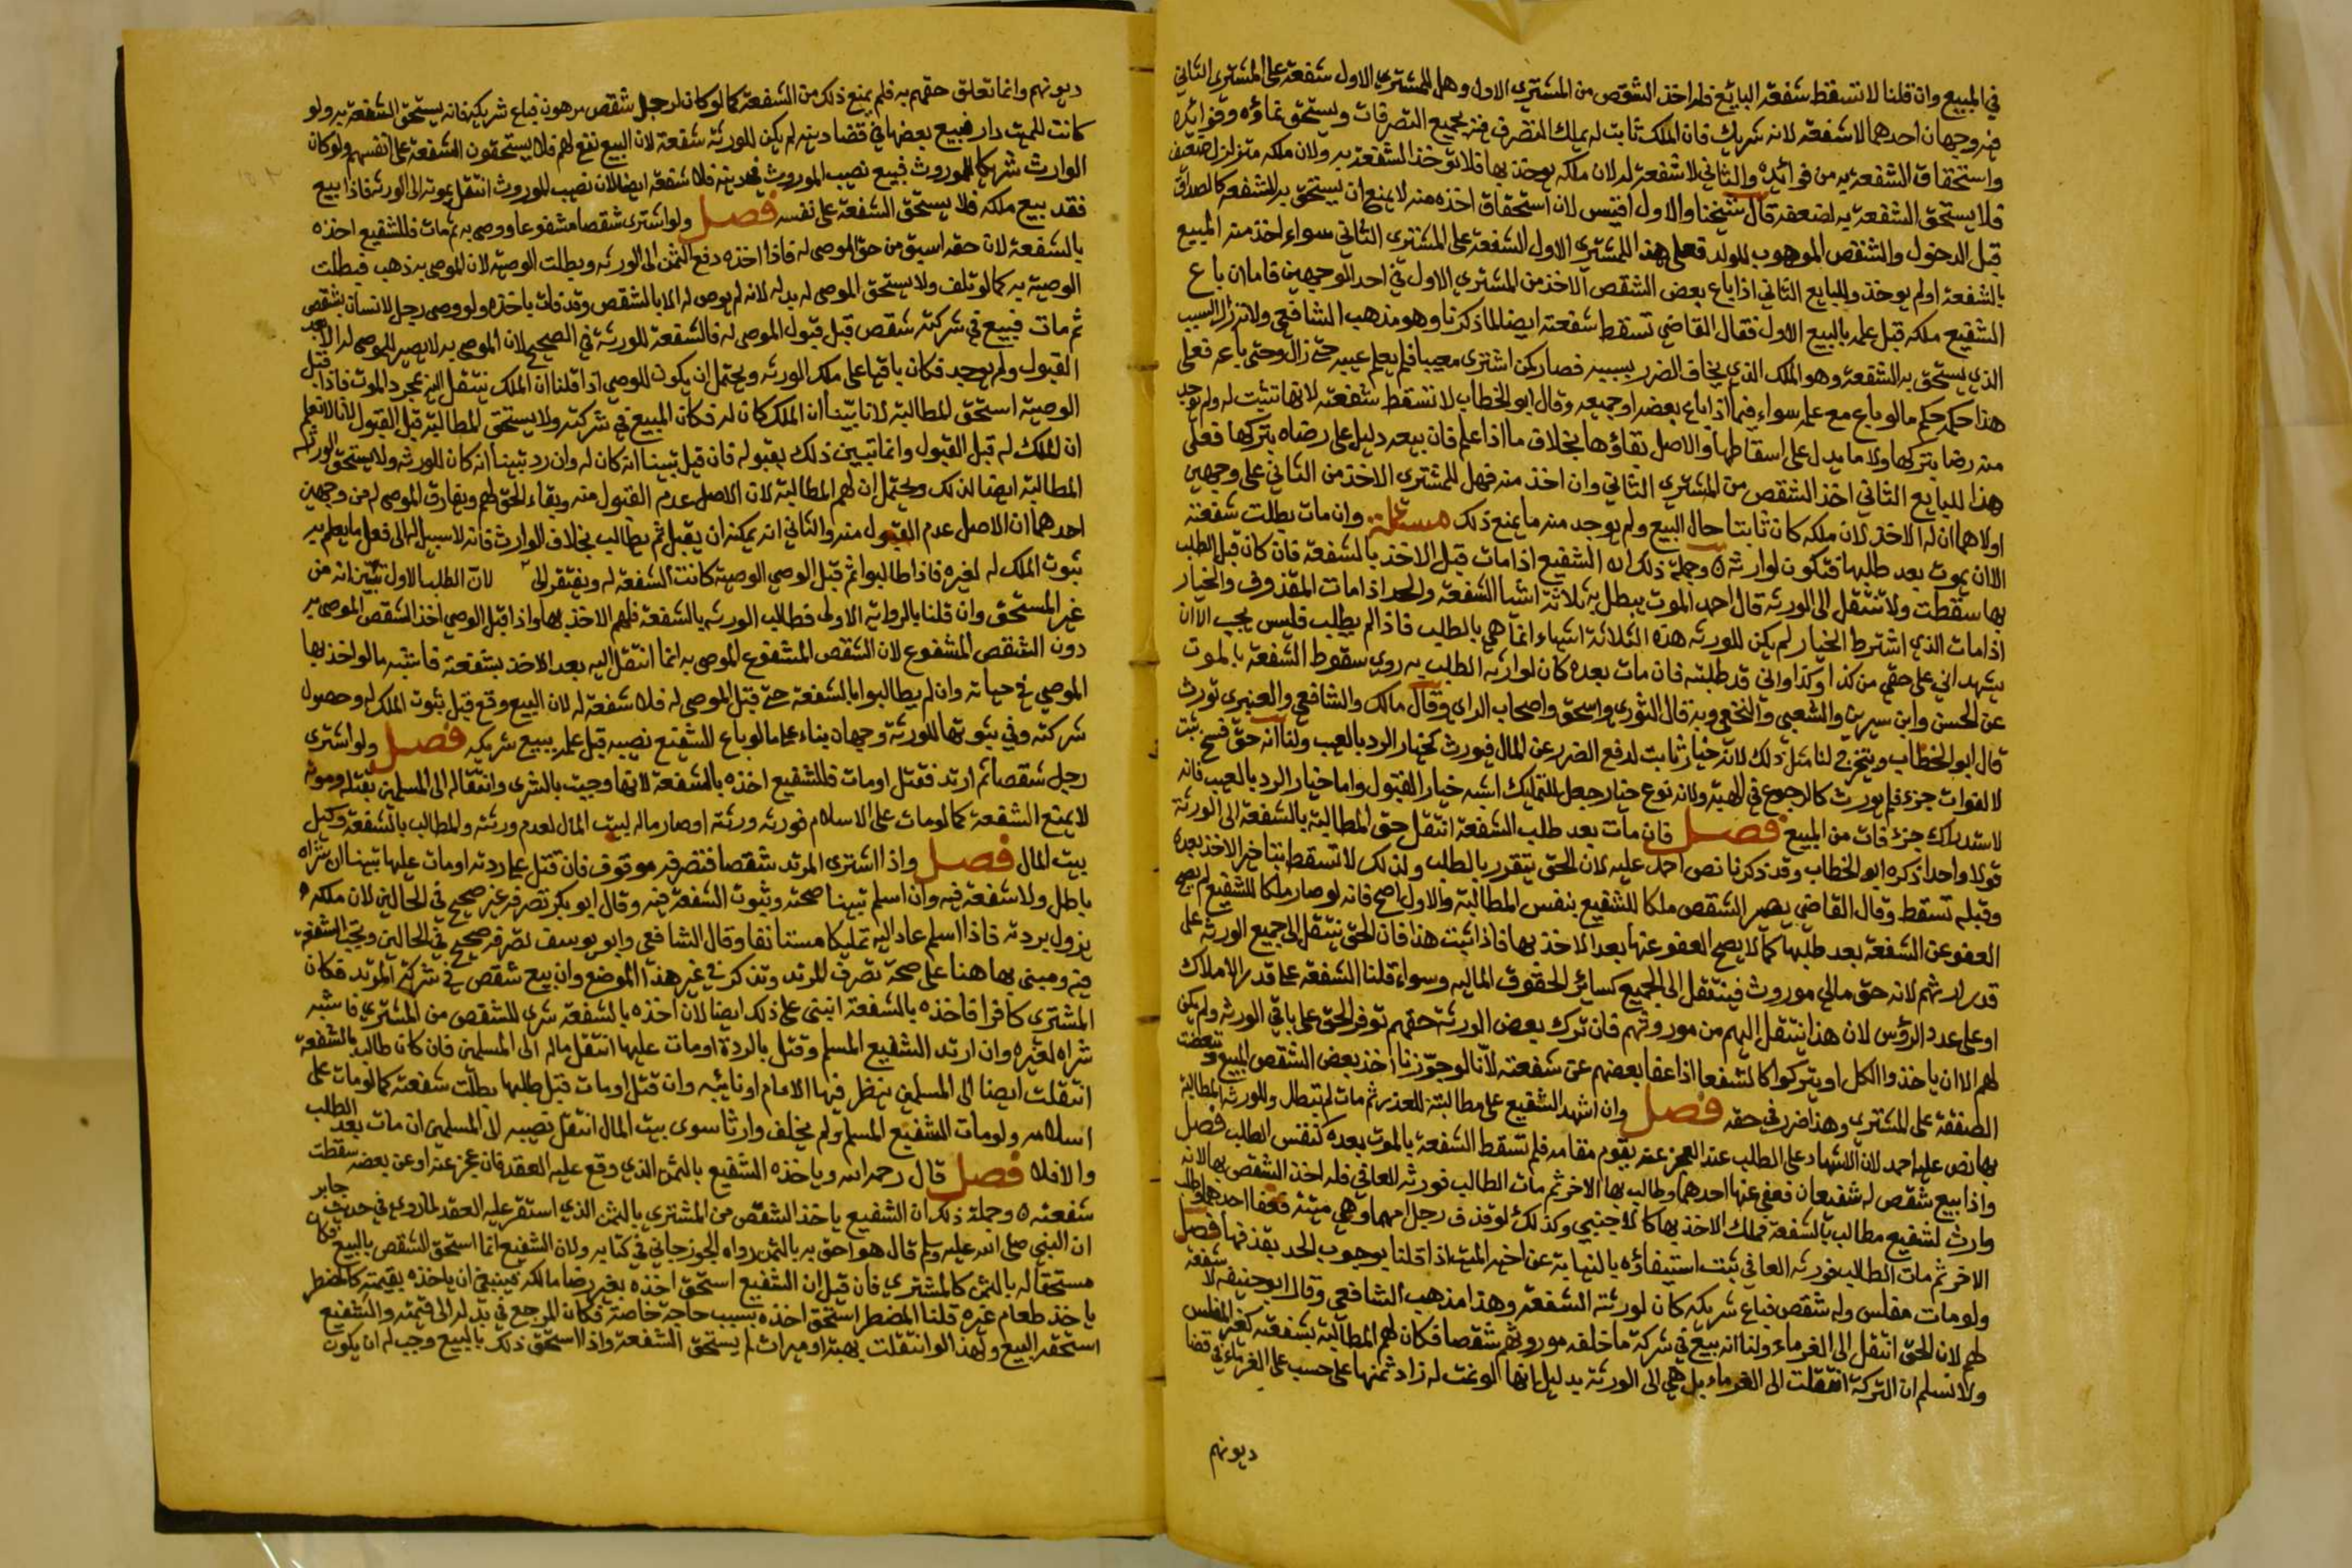 في المبيع وان قلنا لا تسقط شفعة البايع فله اخذ الشقص من المشتري الاول وهل للمشتري الاول شفعة على المشتري الثاني
فيه وجهان احدهما لا شفعة لانه شريك فان الملك ثابت له يملك التصرف فيه بجميع التصرفات ويستحق نماؤه وفوائده
واستحقاق الشفعة به من فوائده والثاني لا شفعة له لان ملكه يوخذ بها فلا توخذ الشفعة به ولان ملكه متزلزل ضعيف
فلا يستحق الشفعة به لضعفه قال شيخنا والاول اقيس لان استحقاق اخذه منه لا يمنع ان يستحق به الشفعة كالصداق
قبل الدخول والشقص الموهوب للولد فعلى هذا للمشتري الاول الشفعة على المشتري الثاني سواء اخذ منه المبيع
بالشفعة او لم يوخذ وللبايع الثاني اذا باع بعض الشقص الاخذ من المشتري الاول في احد الوجهين فاما ان باع
الشفيع ملكه قبل علمه بالبيع الاول فقال القاضي تسقط شفعته ايضا لما ذكرنا وهو مذهب الشافعي ولانه زال السبب
الذي يستحق به الشفعة وهو الملك الذي يخاف الضرر بسببه فصار كمن اشترى معيبا فلم يعلم عيبه حتى زال وحتى باعه فعلى
هذا حكمه حكم ما لو باع مع علمه سواء فيما اذا باع بعضه او جميعه وقال ابو الخطاب لا تسقط شفعته لانها تثبت له ولم يوجد
منه رضا بتركها ولا ما يدل على اسقاطها والاصل بقاؤها بخلاف ما اذا علم فان بيعه دليل على رضاه بتركها فعلى
هذا للبايع الثاني اخذ الشقص من المشتري الثاني وان اخذ منه فهل للمشتري الاخذ من الثاني على وجهين
اولاهما ان له الاخذ لان ملكه كان ثابتا حال البيع ولم يوجد منه ما يمنع ذلك مسئلة وان مات بطلت شفعته
الا ان يموت بعد طلبها فتكون لوارثه وجملة ذلك ان الشفيع اذا مات قبل الاخذ بالشفعة فان كان قبل الطلب
بها سقطت ولا تنتقل الى الورثة قال احمد الموت يبطل به ثلاثة اشيا الشفعة والحد اذا مات المقذوف والخيار
اذا مات الذي اشترط الخيار لم يكن للورثه هذه الثلاثة اشياء انما هي بالطلب فاذا لم يطلب فليس يجب الا ان
يشهد اني على حقي من كذا وكذا واني قد طلبته فان مات بعده كان لوارثه الطلب به روي سقوط الشفعة بالموت
عن الحسن وابن سيرين والشعبي والنخعي وبه قال الثوري واسحق واصحاب الراي وقال مالك والشافعي والعنبري تورث
قال ابو الخطاب ويتخرج لنا مثل ذلك لانه خيار ثابت لدفع الضرر عن المال فيورث كخيار الرد بالعيب ولنا انه حق فسخ ثبت
لا لفوات جزء فلم يورث كالرجوع في الهبة ولانه نوع خيار جعل للتمليك اشبه خيار القبول واما خيار الرد بالعيب فانه
لاستدراك جزء فات من المبيع فصل فان مات بعد طلب الشفعة انتقل حق المطالبة بالشفعة الى الورثة
قولا واحدا ذكره ابو الخطاب وقد ذكرنا نص احمد عليه لان الحق يتقرر بالطلب ولذلك لا تسقط بتاخير الاخذ بعده
وقبله تسقط وقال القاضي يصير الشقص ملكا للشفيع بنفس المطالبة والاول اصح فانه لو صار ملكا للشفيع لم يصح
العفو عن الشفعة بعد طلبها كما لا يصح العفو عنها بعد الاخذ بها فاذا ثبت هذا فان الحق ينتقل الى جميع الورثة على
قدر ارثهم لانه حق مالي موروث فينتقل الى الجميع كسائر الحقوق الماليه وسواء قلنا الشفعة على قدر الاملاك
او على عدد الرؤس لان هذا ينتقل اليهم من موروثهم فان ترك بعض الورثة حقهم توفر الحق على باقي الورثه ولم يكن
لهم الا ان ياخذوا الكل او يتركوا كالشفعا اذا عفا بعضهم عن شفعته لانا لو جوزنا اخذ بعض الشقص المبيع وتبعضت
الصفقة على المشتري وهذا ضرر في حقه فصل وان اشهد الشفيع على مطالبته للعذر ثم مات لم تبطل وللورثه المطالبة
بها نص عليه احمد لان الاشهاد على الطلب عند العجز عنه يقوم مقامه فلم تسقط الشفعة بالموت بعده كنفس الطلب فصل
واذا بيع شقص له شفيعان فعفى عنها احدهما وطالب بها الاخر ثم مات الطالب فورثه العافي فله اخذ الشقص بها لانه
وارث لشفيع مطالب بالشفعة فملك الاخذ بها كالاجنبي وكذلك لو قذف رجل امهما وهي ميته فعفا احدهما وطلب
الاخر ثم مات الطالب فورثه العافي ثبت استيفاؤه بالنيابة عن اخيه الميت اذا قلنا بوجوب الحد بقذفها فصل
ولو مات مفلس وله شقص فباع شريكه كان لورثته الشفعة وهذا مذهب الشافعي وقال ابو حنيفه لا شفعة
لهم لان الحق انتقل الى الغرماء ولنا انه بيع في شركة ما خلفه موروثهم شقصا فكان لهم المطالبة بشفعته كغير المفلس
ولا نسلم ان التركة انتقلت الى الغرماء بل هي الى الورثة بدليل انها لو نمت له زاد ثمنها على حسب على الغرماء في قضا
ديونهم
ديونهم وانما تعلق حقهم به فلم يمنع ذلك من الشفعة كما لو كان لرجل شقص مرهون فباع شريكه فانه يستحق الشفعة به ولو
كانت للميت دار فبيع بعضها في قضا دينه لم يكن للورثه شفعة لان البيع نفع لهم فلا يستحقون الشفعة على انفسهم ولو كان
الوارث شريكا للموروث فبيع نصيب الموروث في دينه فلا شفعة ايضا لان نصيب الموروث انتقل بموته الى الورثه فاذا بيع
فقد بيع ملكه فلا يستحق الشفعة على نفسه فصل ولو اشترى شقصا مشفوعا ووصى به ثم مات فللشفيع اخذه
بالشفعة لان حقه اسبق من حق الموصى له فاذا اخذه دفع الثمن الى الورثه وبطلت الوصية لان الموصى به ذهب فبطلت
الوصية به كما لو تلف ولا يستحق الموصى له بدله لانه لم يوص له الا بالشقص وقد فات باخذه ولو وصى رجل لانسان بشقص
ثم مات فبيع في شركته شقص قبل قبول الموصى له فالشفعة للورثة في الصحيح لان الموصى به لا يصير للموصى له الا بعد
القبول ولم يوجد فكان باقيا على ملك الورثه ويحتمل ان يكون للوصي اذا قلنا ان الملك ينتقل اليه بمجرد الموت فاذا قبل
الوصية استحق المطالبة لانا تبينا ان الملك كان له فكان المبيع في شركته ولا يستحق المطالبة قبل القبول لانا لا نعلم
ان الملك له قبل القبول وانما تبين ذلك بقبوله فان قبل تبينا انه كان له وان رد تبينا انه كان للورثه ولا يستحق الورثة
المطالبة ايضا لذلك ويحتمل ان لهم المطالبة لان الاصل عدم القبول منه وبقاء الحق لهم ويفارق الموصى له من وجهين
احدهما ان الاصل عدم القبول منه والثاني انه يمكنه ان يقبل ثم يطالب بخلاف الوارث فانه لا سبيل له الى فعل ما يعلم به
ثبوت الملك له لغيره فاذا طالبوا ثم قبل الوصي الوصية كانت الشفعة له ويفتقر الى لان الطلب الاول تبين انه من
غير المستحق وان قلنا بالرواية الاولى فطالب الورثه بالشفعة فلهم الاخذ بها واذا قبل الوصي اخذ الشقص الموصى به
دون الشقص المشفوع لان الشقص المشفوع الموصى به انما انتقل اليه بعد الاخذ بشفعته فاشبه ما لو اخذ بها
الموصي في حياته وان لم يطالبوا بالشفعة حتى قبل الموصى له فلا شفعة له لان البيع وقع قبل ثبوت الملك له وحصول
شركته وفي ثبوتها للورثة وجهان بناء على ما لو باع الشفيع نصيبه قبل علمه ببيع شريكه فصل ولو اشترى
رجل شقصا ثم ارتد فقتل او مات فللشفيع اخذه بالشفعة لانها وجبت بالشرى وانتقاله الى المسلمين بقتله او موته
لا يمنع الشفعة كما لو مات على الاسلام فورثه ورثته او صار ماله لبيت المال لعدم ورثته والمطالب بالشفعة وكيل
بيت المال فصل واذا اشترى المرتد شقصا فتصرفه موقوف فان قتل على ردته او مات عليها تبينا ان شراه
باطل ولا شفعة فيه وان اسلم تبينا صحته وثبوت الشفعة فيه وقال ابو بكر تصرفه غير صحيح في الحالين لان ملكه
يزول بردته فاذا اسلم عاد اليه تمليكا مستانفا وقال الشافعي وابو يوسف تصرفه صحيح في الحالين وتجب الشفعة
فيه ومبنى بها هنا على صحة تصرف المرتد وتذكر في غير هذا الموضع وان بيع شقص في شركة المرتد فكان
المشتري كافرا فاخذه بالشفعة انبنى على ذلك ايضا لان اخذه بالشفعة شرى للشقص من المشتري فاشبه
شراه لغيره وان ارتد الشفيع المسلم وقتل بالردة او مات عليها انتقل ماله الى المسلمين فان كان طالب بالشفعة
انتقلت ايضا الى المسلمين ينظر فيها الامام او نائبه وان قتل او مات قبل طلبها بطلت شفعته كما لو مات على
اسلامه ولو مات الشفيع المسلم ولم يخلف وارثا سوى بيت المال انتقل نصيبه الى المسلمين ان مات بعد الطلب
والا فلا فصل قال رحمه الله وياخذه الشفيع بالثمن الذي وقع عليه العقد فان عجز عنه او عن بعضه سقطت
شفعته وجملة ذلك ان الشفيع ياخذ الشقص من المشتري بالثمن الذي استقر عليه العقد لما روي في حديث جابر
ان النبي صلى الله عليه وسلم قال هو احق به بالثمن رواه الجوزجاني في كتابه ولان الشفيع انما استحق الشقص بالبيع فكان
مستحقا له بالثمن كالمشتري فان قيل ان الشفيع استحق اخذه بغير رضا مالكه فينبغي ان ياخذه بقيمته كالمضطر
ياخذ طعام غيره قلنا المضطر استحق اخذه بسبب حاجة خاصة فكان المرجع في بدله الى قيمته والشفيع
استحقه البيع ولهذا لو انتقلت بهبة او ميراث لم يستحق الشفعة واذا استحق ذلك بالبيع وجب له ان يكون